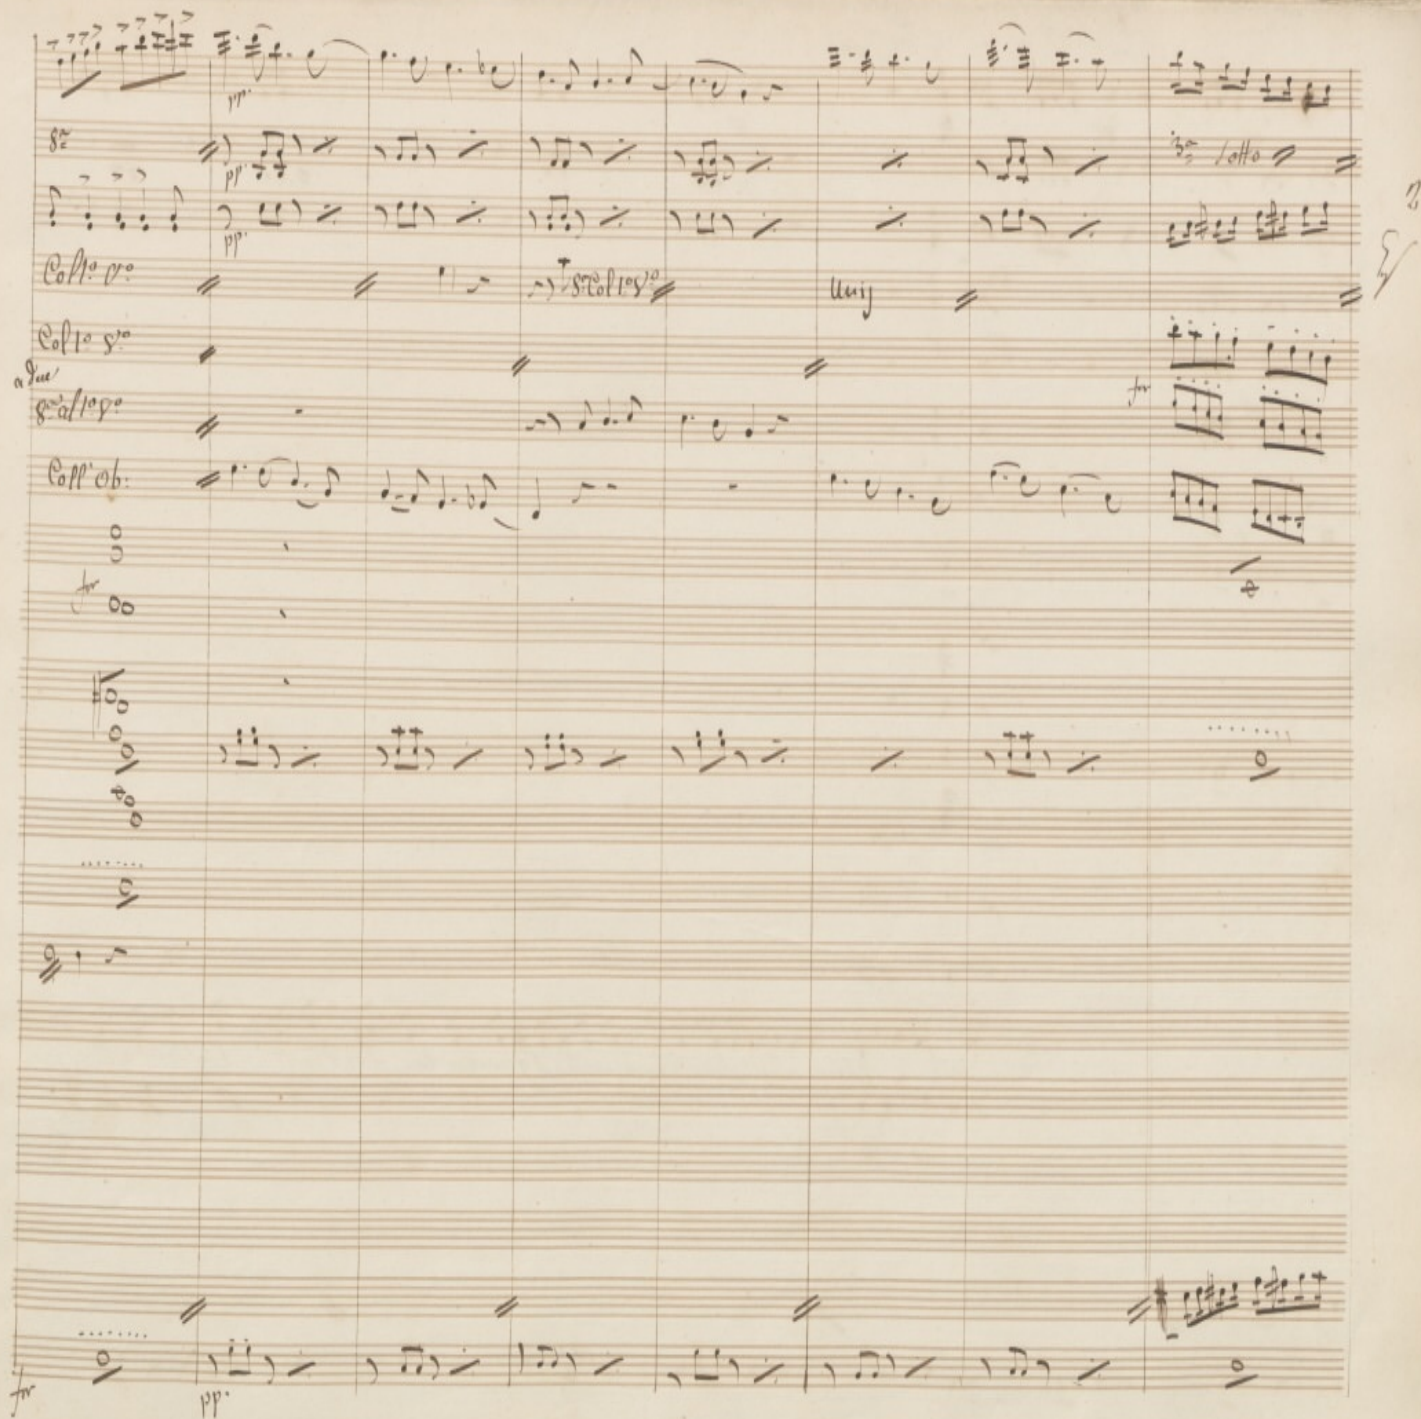 pp.
8ª
pp
3ª sotto
pp.
Col 1º Vº
8ª Col 1º Vº
Unis
Col 1º Vº
a due
8ª al 1º Vº
for
Coll' Ob:
for
for
pp.